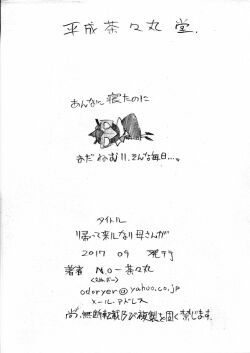 平成茶々丸堂.
あんなに寝たのに
まだねむい!!.そんな毎日…。
タイトル
帰って来ない母さんが
2017 09 発刊
著者 N.O-茶々丸
odoryer@yahoo.co.jp
メール.アドレス
尚.無断転載及び複製を固く禁じます.